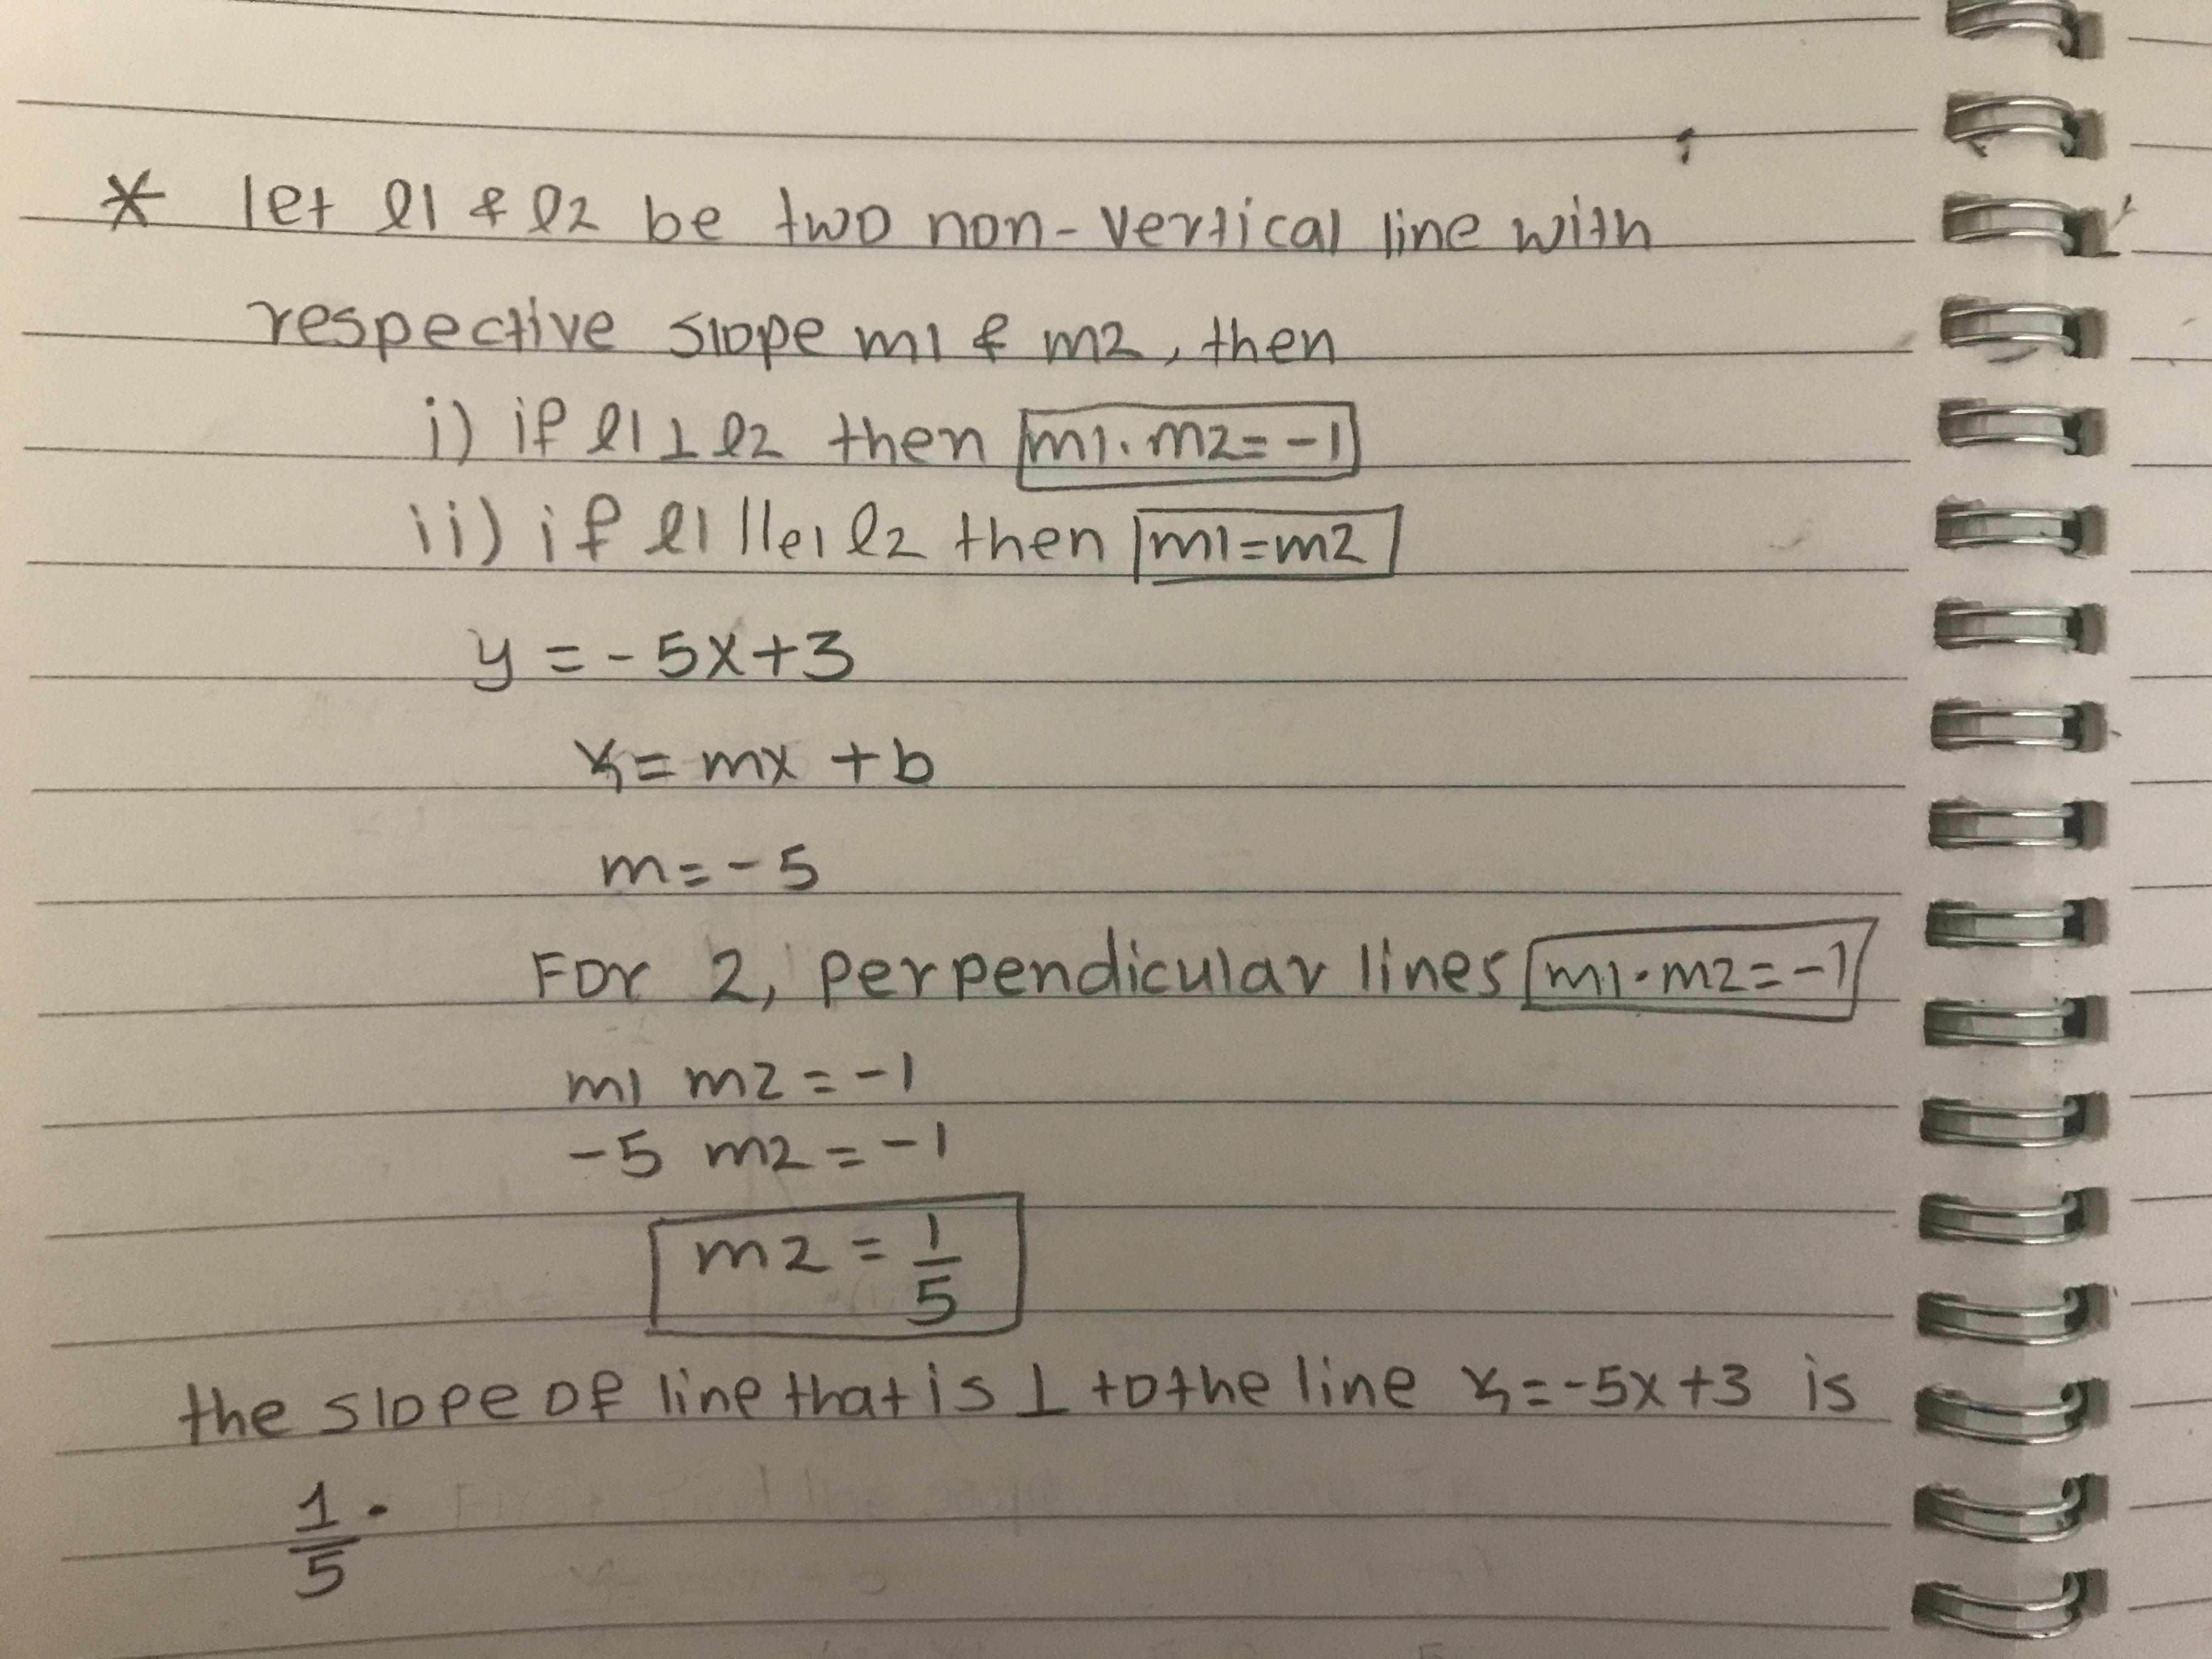 * let l1 & l2 be two non-vertical line with
respective slope m1 & m2, then
i) if l1 ⊥ l2 then m1·m2=-1
ii) if l1 ||el l2 then m1=m2
y = -5x+3
y = mx + b
m = -5
For 2, perpendicular lines m1·m2=-1
m1 m2 = -1
-5 m2 = -1
m2 = 1/5
the slope of line that is ⊥ to the line y=-5x+3 is
1/5.